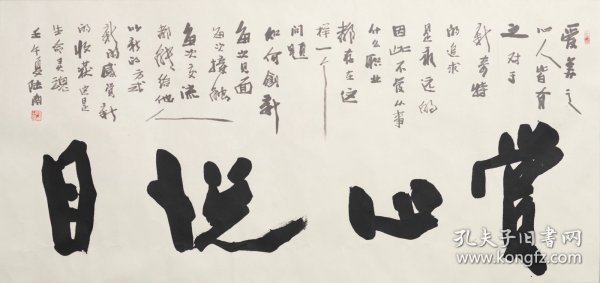 爱美之
心人皆有
之 对于
新奇特
的追求
是永远的
因此不管从事
什么职业
都存在这
样一个
问题
如何创新
每次见面
每次接触
每次交流
都能给他人
以新的方式
新的感觉新
的收获这是
生命灵魂
壬午夏陆南
赏心悦目
孔夫子旧书网
www.kongfz.com